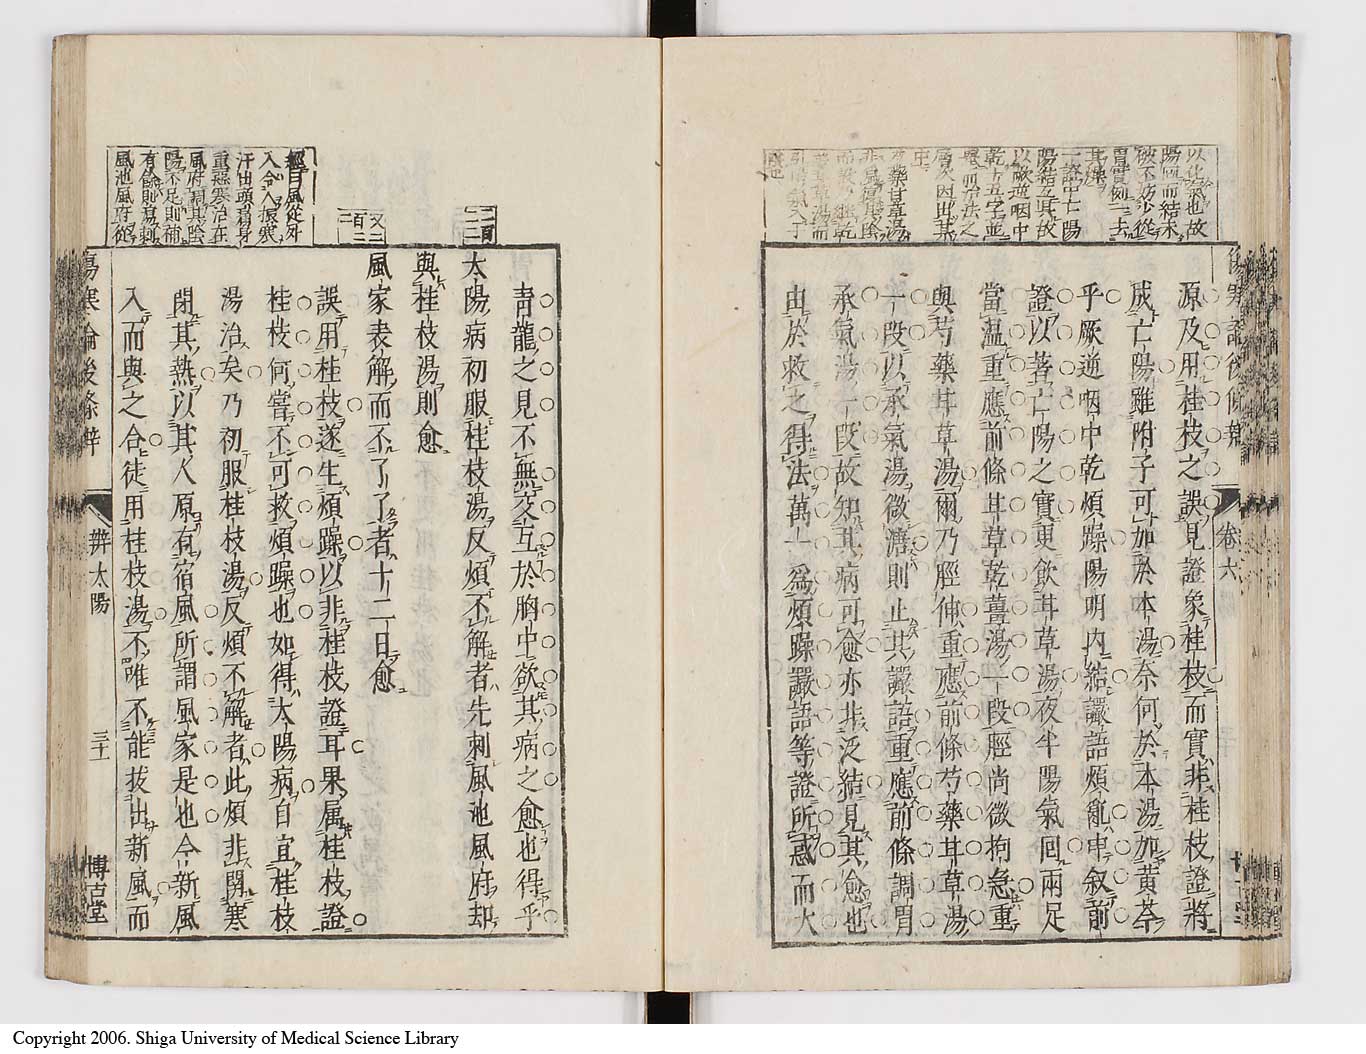 以化氣也故
陽回而結未
破不妨少從
胃實例一去
其燥
證中亡陽
陽結互其故
以厥逆咽中
乾
源及用桂枝之誤見證象桂枝而實非桂枝證將
成亡陽雖附子可加於本湯奈何於本湯加黃芩
乎厥逆咽中乾煩躁陽明內結讝語煩亂申叙前
證以著亡陽之實更飲甘草湯夜半陽氣回兩足
當溫重應前條甘草乾薑湯一段脛尚微拘急重
與芍藥甘草湯爾乃脛伸重應前條芍藥甘草湯
一段以承氣湯微溏則止其讝語重應前條調胃
承氣湯一段故知其病可愈亦非泛結見其愈也
由於救之得法萬一爲煩躁讝語等證所惑而大
卷六
青龍之見不無交互於胸中欲其病之愈也得乎
二百二二
太陽病初服桂枝湯反煩不解者先刺風池風府却
與桂枝湯則愈
又二百二二
風家表解而不了了者十二日愈
誤用桂枝遂生煩躁以非桂枝證耳果屬桂枝證
桂枝何嘗不可救煩躁也如得太陽病自宜桂枝
湯治矣乃初服桂枝湯反煩不解者此煩非關寒
閉其熱以其人原有宿風所謂風家是也今新風
入而與之合徒用桂枝湯不唯不能拔出新風而
經曰風從外
入令人振寒
汗出頭痛身
重惡寒治在
風府調其陰
陽不足則補
有餘則瀉刺
風池風府從
傷寒論後條辨
辨太陽
三十
博古堂
Copyright 2006. Shiga University of Medical Science Library